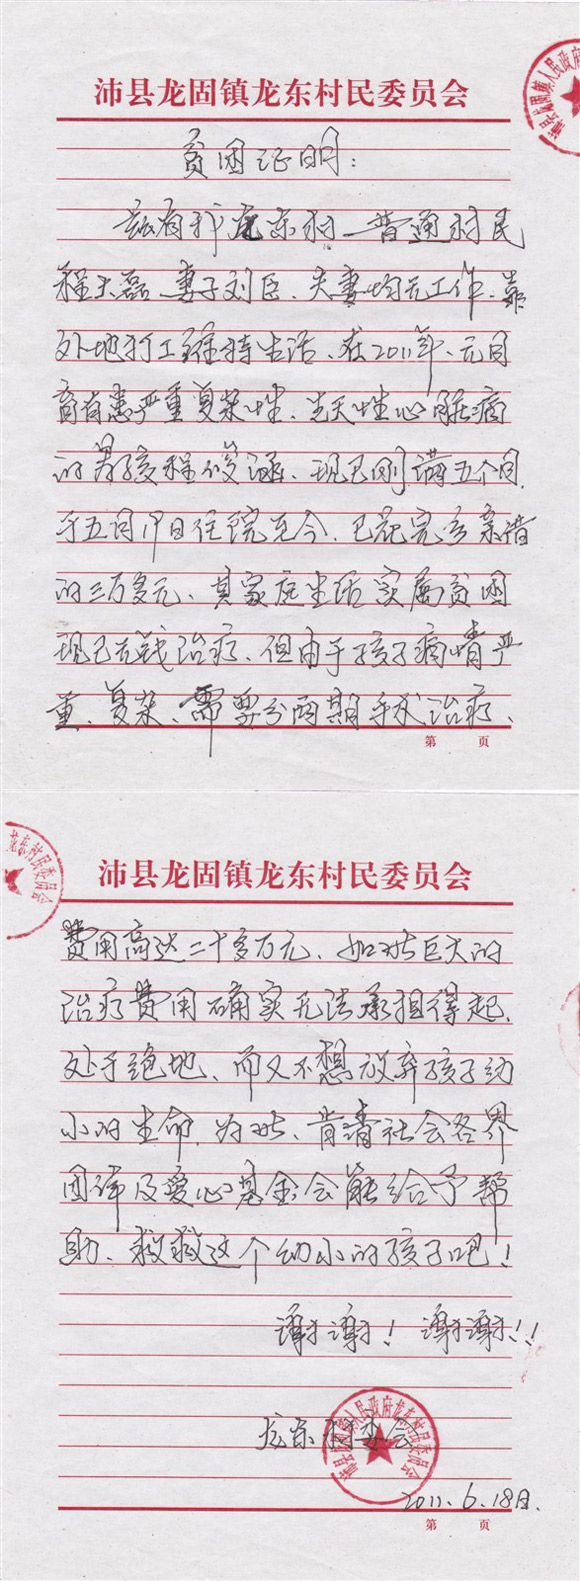 沛县龙固镇龙东村民委员会
贫困证明：
兹有我龙东村一普通村民
程大磊、妻子刘臣、夫妻均无工作、靠
外地打工维持生活、在2011年、元月
育有患严重复杂性、先天性心脏病
的男孩程骏涵、现已刚满五个月
于五月19日住院至今、已花完亲借
的三万多元、其家庭生活实属贫困
现已无钱治疗、但由于孩子病情严
重、复杂、需要分两期手术治疗、
第 页
龙东村民委员会
沛县龙固镇龙东村民委员会
费用高达二十多万元、如此巨大的
治疗费用确实无法承担得起、
处于绝地、而又不想放弃孩子幼
小的生命、为此、肯请社会各界
团体及爱心基金会能给予帮
助、救救这个幼小的孩子吧！
谢谢！谢谢！！
龙东村委会
2011.6.18日.
第 页